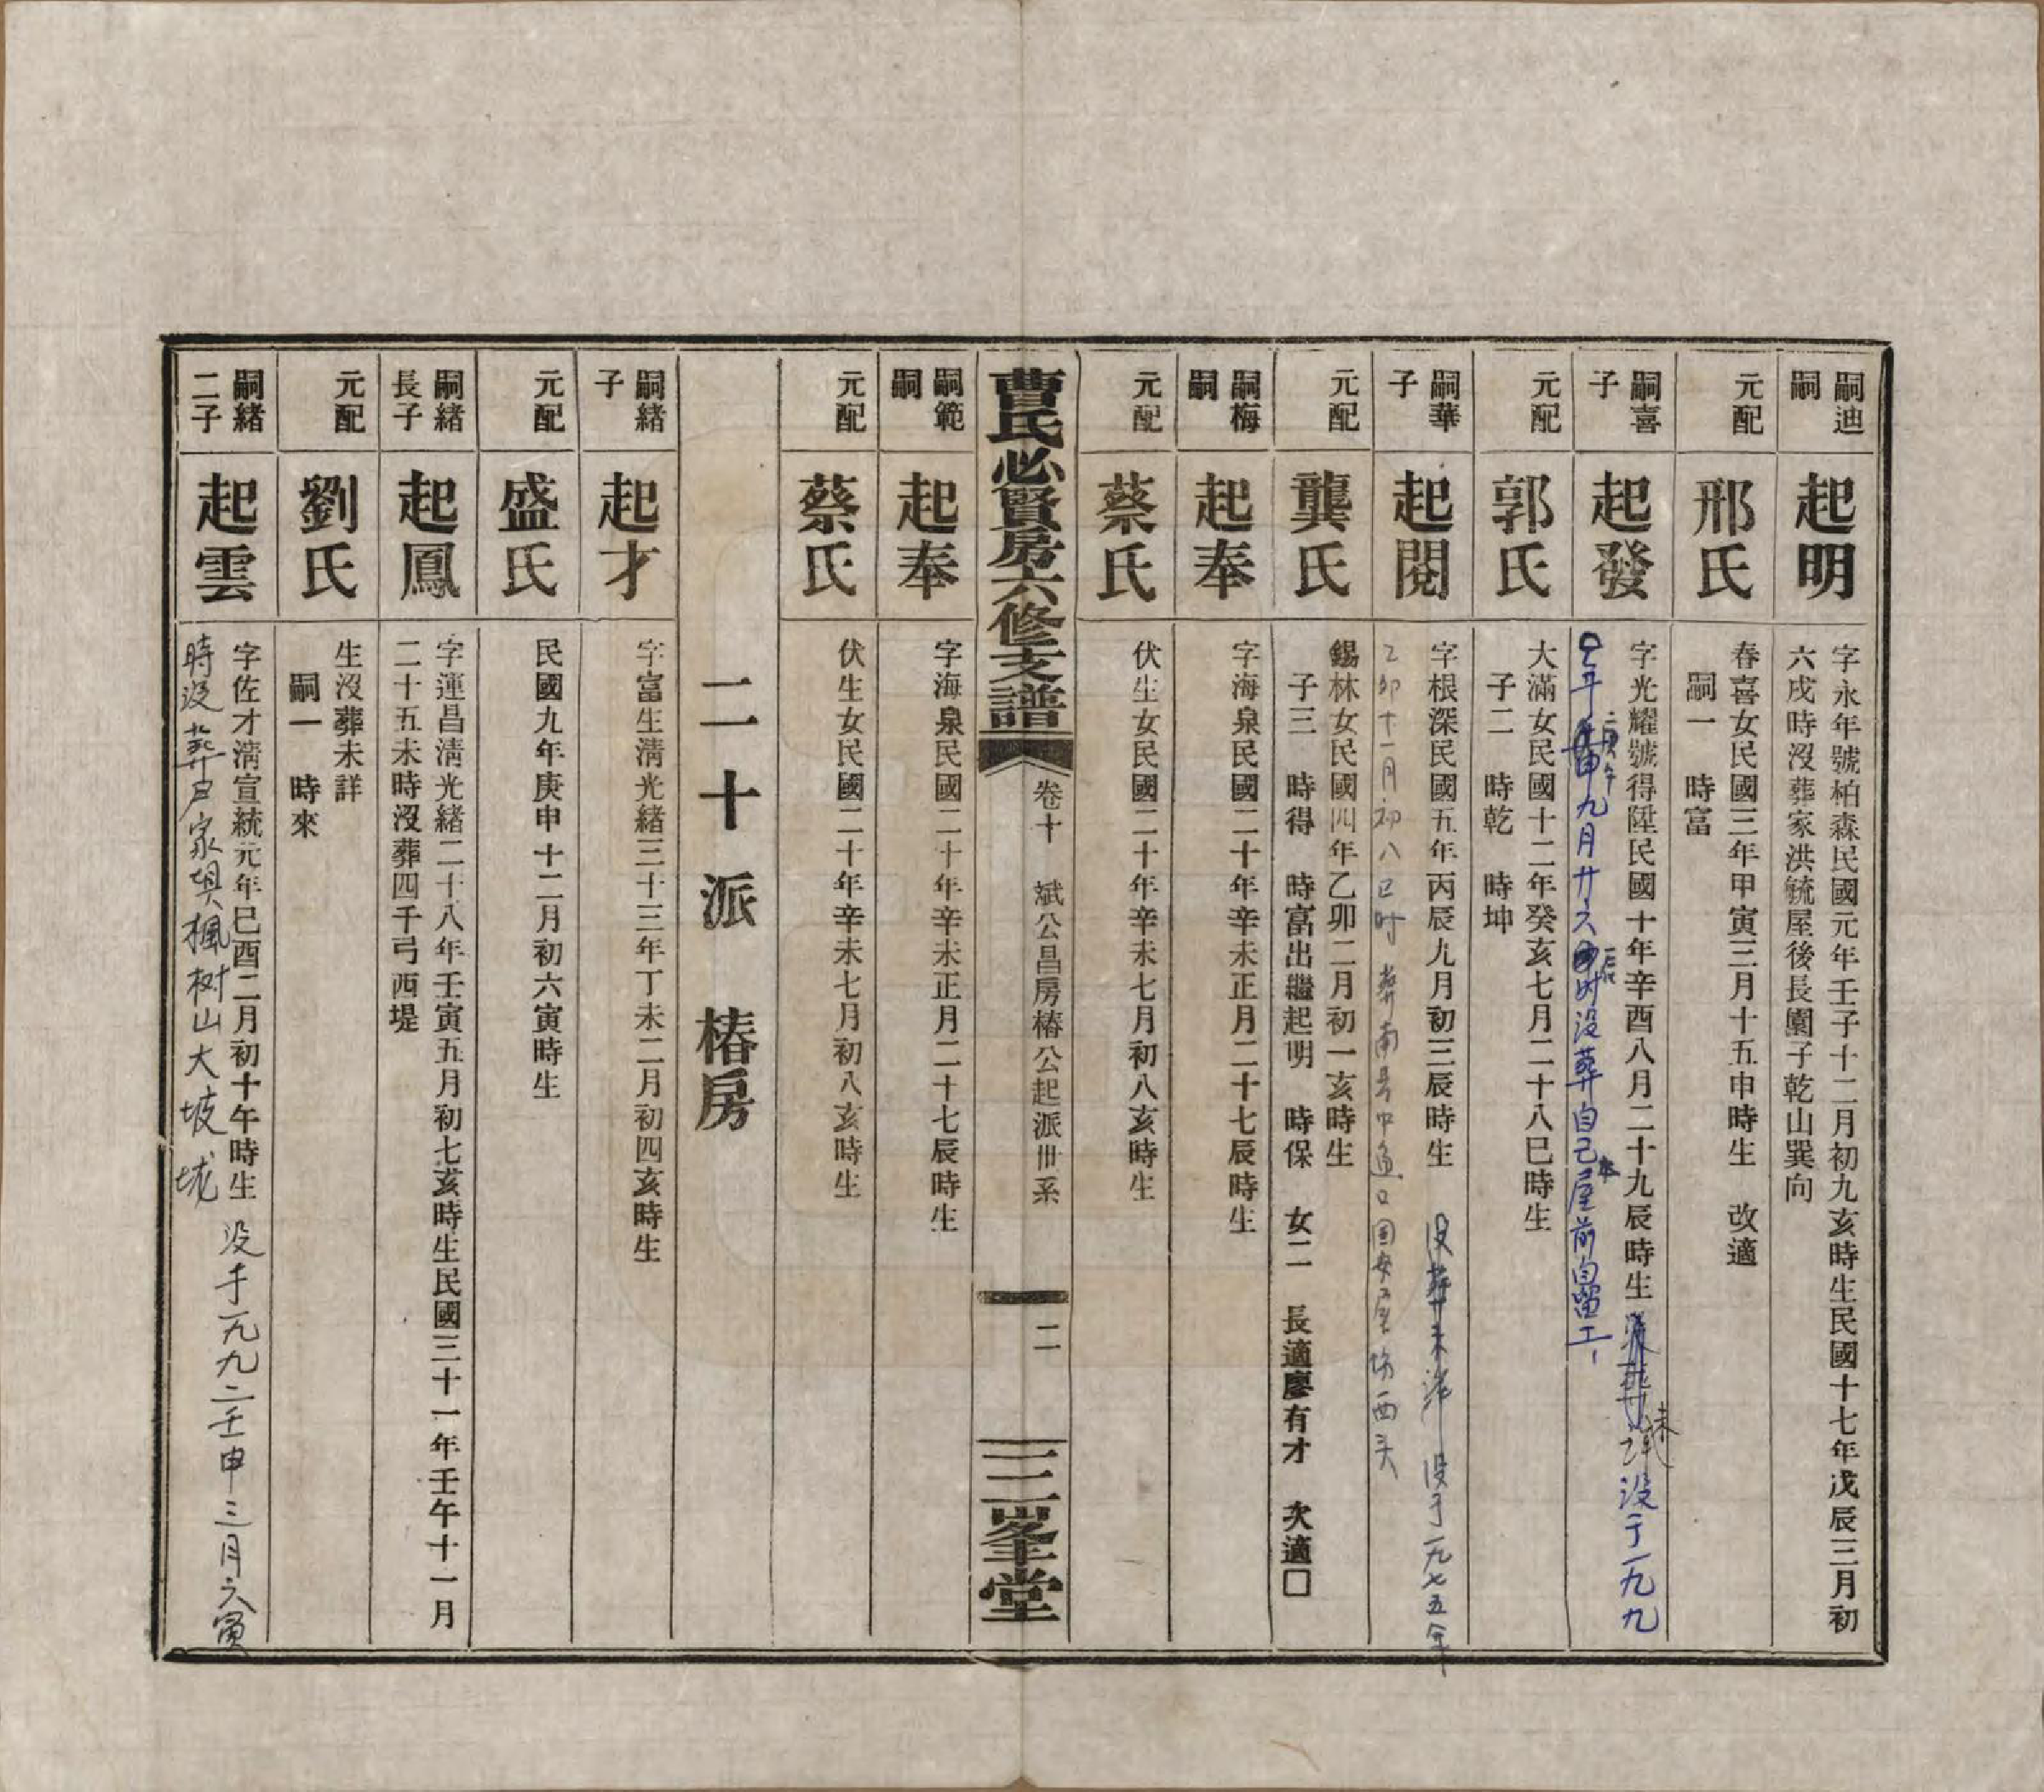 嗣迪
嗣
起明
字永年號柏森民國元年壬子十二月初九亥時生民國十七年戊辰三月初
六戌時沒葬家洪毓屋後長園子乾山巽向
元配
邢氏
春喜女民國三年甲寅三月十五申時生　改適
嗣一　時富
嗣喜
子
起發
字光耀號得陞民國十年辛酉八月二十九辰時生　没于一九九
年　九月廿六　时没葬自己屋前自留工
元配
郭氏
大滿女民國十二年癸亥七月二十八巳時生
子二　時乾　時坤
嗣華
子
起閱
字根深民國五年丙辰九月初三辰時生　没葬未详　没于一九七五年
乙卯十一月初八巳时　葬南　中　口　屋　西头
元配
龔氏
錫林女民國四年乙卯二月初一亥時生
子三　時得　時富出繼起明　時保　女二　長適廖有才　次適□
嗣梅
嗣
起奉
字海泉民國二十年辛未正月二十七辰時生
元配
蔡氏
伏生女民國二十年辛未七月初八亥時生
曹氏必賢房六修支譜
卷十　斌公昌房椿公起派世系
二
三峯堂
嗣範
嗣
起奉
字海泉民國二十年辛未正月二十七辰時生
元配
蔡氏
伏生女民國二十年辛未七月初八亥時生
二十派　椿房
嗣緒
子
起才
字富生清光緒三十三年丁未二月初四亥時生
元配
盛氏
民國九年庚申十二月初六寅時生
嗣緒
長子
起鳳
字運昌清光緒二十八年壬寅五月初七亥時生民國三十一年壬午十一月
二十五未時沒葬四千弓西堤
元配
劉氏
生沒葬未詳
嗣一　時來
嗣緒
二子
起雲
字佐才清宣統元年己酉二月初十午時生　没于一九九二壬申三月六寅
時没葬　家垻楓树山大坡垅